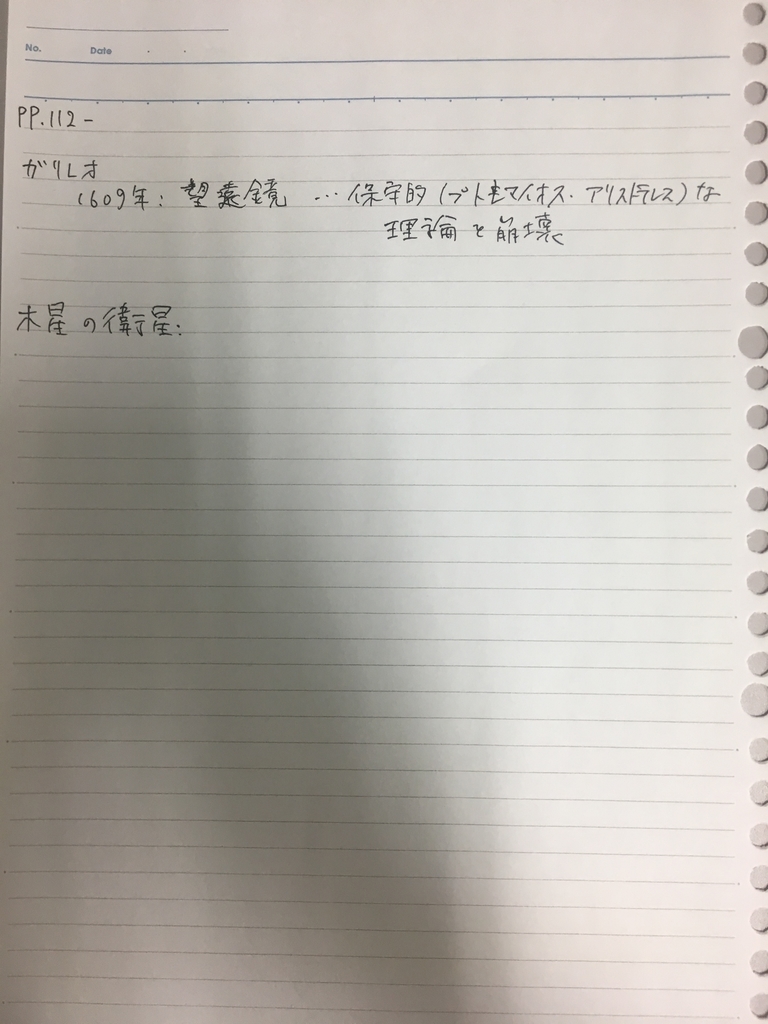 No. Date . .
PP.112-
ガリレオ
1609年: 望遠鏡 … 保守的 (プトレマイオス・アリストテレス) な
理論を崩壊
木星の衛星: